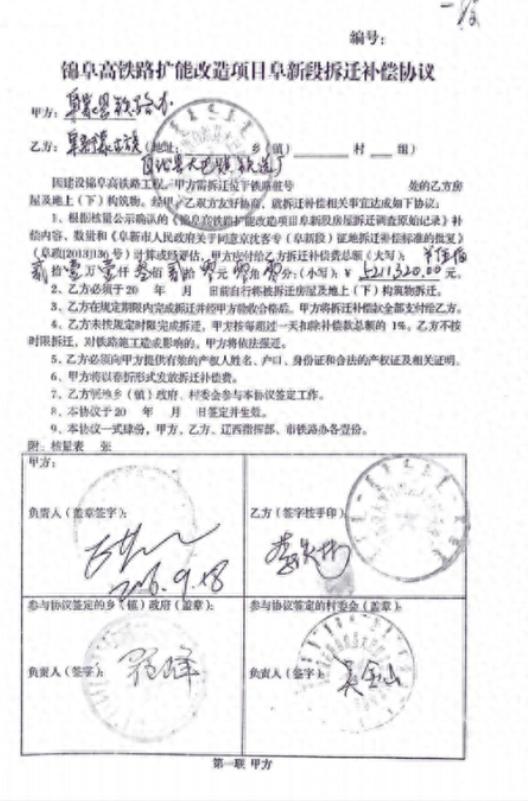 编号:
锦阜高铁路扩能改造项目阜新段拆迁补偿协议
甲方: 阜蒙县铁路办
乙方: 阜新蒙古族(地址: 乡(镇) 村 组)
因建设锦阜高铁路工程,甲方需拆迁位于铁路桩号 处的乙方房
屋及地上(下)构筑物。经甲、乙双方友好协商,就拆迁补偿相关事宜达成如下协议:
1、根据核量公示确认的《锦阜高铁路扩能改造项目阜新段房屋拆迁调查原始记录》补
偿内容、数量和《阜新市人民政府关于同意京沈客专(阜新段)征地拆迁补偿标准的批复》
(阜政[2013]136号)计算或经评估,甲方应付给乙方拆迁补偿费总额(大写):
贰拾壹万壹仟叁佰贰拾零元零角零分;(小写):¥ 5211320.00元。
2、乙方必须于20 年 月 日前自行将被拆迁房屋及地上(下)构筑物拆迁。
3、乙方在规定期限内完成拆迁并经甲方验收合格后,甲方将拆迁补偿款全部支付给乙方。
4、乙方未按规定时限完成拆迁,甲方按每超过一天扣除补偿款总额的1%。乙方不按
时限拆迁,对铁路施工造成影响的,甲方将依法强迁。
5、乙方必须向甲方提供有效的产权人姓名、户口、身份证和合法的产权证及相关证明。
6、甲方将以存折形式发放拆迁补偿费。
7、乙方所属乡(镇)政府、村委会参与本协议签定工作。
8、本协议于20 年 月 日签定并生效。
9、本协议一式肆份,甲方、乙方、辽西指挥部、市铁路办各壹份。
附:核量表 张
甲方:
负责人(盖章签字):
2016.9.18
乙方(签字按手印):
参与协议签定的乡(镇)政府(盖章):
负责人(签字):
参与协议签定的村委会(盖章):
负责人(签字): 吴金山
第一联 甲方